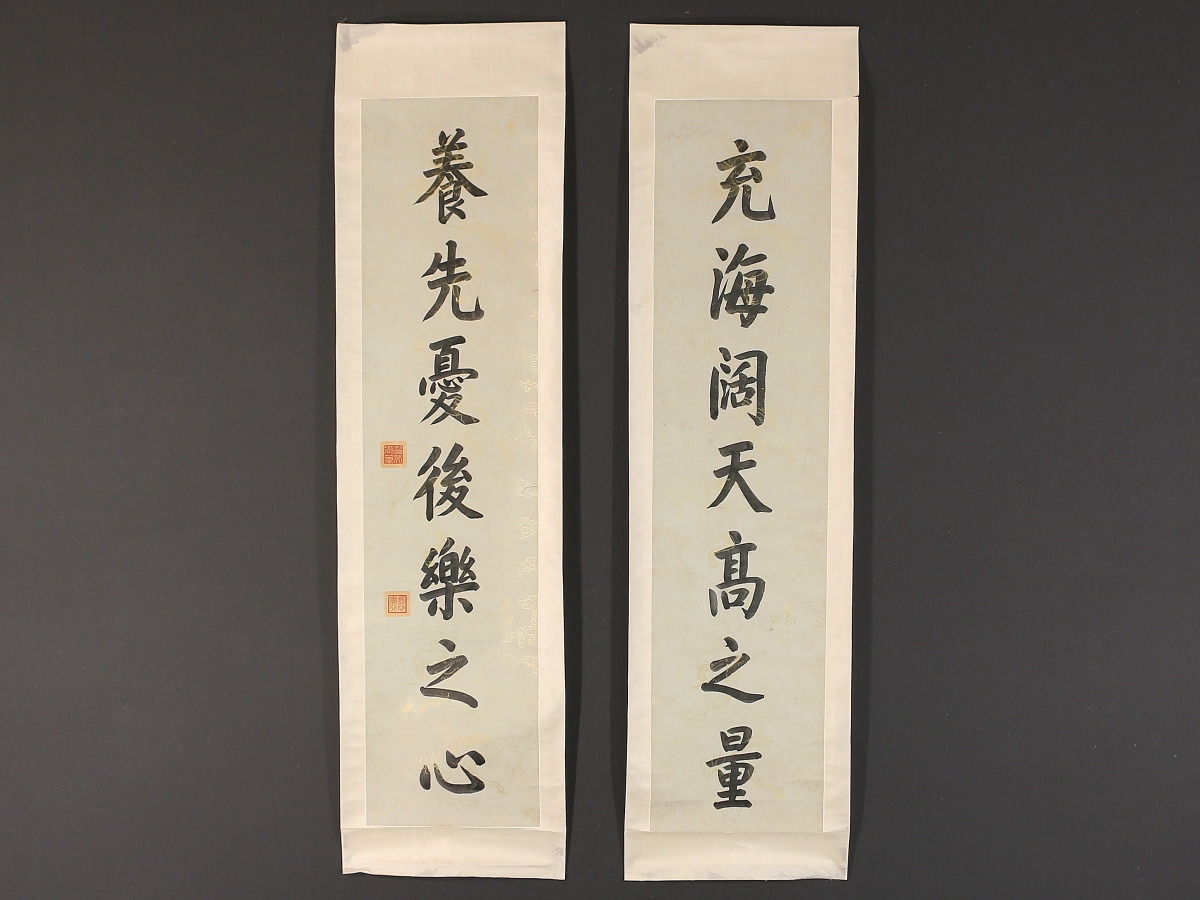 充海阔天高之量
養先憂後樂之心